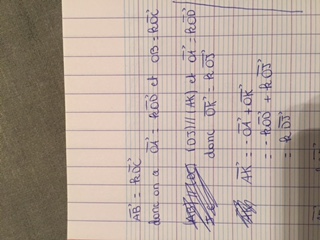 A⃗B⃗' = k D⃗C⃗'
donc on a O⃗A⃗' = k O⃗D⃗' et OB = k O⃗C⃗'
(DJ) // (AK) et O⃗A⃗' = k O⃗D⃗'
donc O⃗K⃗' = k O⃗J⃗'
A⃗K⃗' = - O⃗A⃗' + O⃗K⃗'
= - k O⃗D⃗' + k O⃗J⃗'
= k D⃗J⃗'